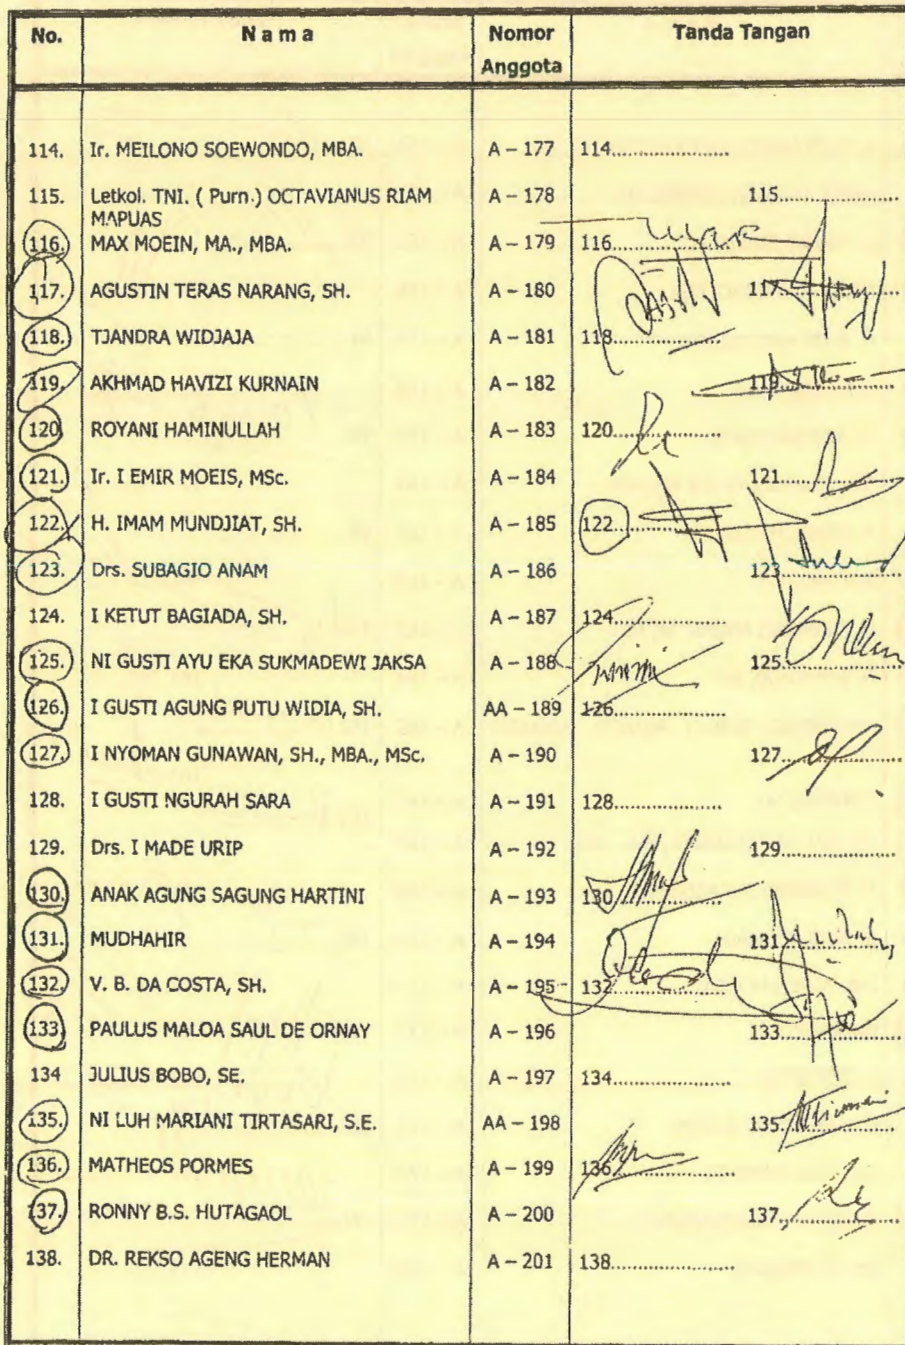 No. N a m a Nomor Anggota Tanda Tangan
114. Ir. MEILONO SOEWONDO, MBA. A – 177 114....................
115. Letkol. TNI. ( Purn.) OCTAVIANUS RIAM A – 178 115....................
MAPUAS
116. MAX MOEIN, MA., MBA. A – 179 116....................
117. AGUSTIN TERAS NARANG, SH. A – 180 117....................
118. TJANDRA WIDJAJA A – 181 118....................
119. AKHMAD HAVIZI KURNAIN A – 182 119....................
120. ROYANI HAMINULLAH A – 183 120....................
121. Ir. I EMIR MOEIS, MSc. A – 184 121....................
122. H. IMAM MUNDJIAT, SH. A – 185 122....................
123. Drs. SUBAGIO ANAM A – 186 123....................
124. I KETUT BAGIADA, SH. A – 187 124....................
125. NI GUSTI AYU EKA SUKMADEWI JAKSA A – 188 125....................
126. I GUSTI AGUNG PUTU WIDIA, SH. AA – 189 126....................
127. I NYOMAN GUNAWAN, SH., MBA., MSc. A – 190 127....................
128. I GUSTI NGURAH SARA A – 191 128....................
129. Drs. I MADE URIP A – 192 129....................
130. ANAK AGUNG SAGUNG HARTINI A – 193 130....................
131. MUDHAHIR A – 194 131....................
132. V. B. DA COSTA, SH. A – 195 132....................
133. PAULUS MALOA SAUL DE ORNAY A – 196 133....................
134 JULIUS BOBO, SE. A – 197 134....................
135. NI LUH MARIANI TIRTASARI, S.E. AA – 198 135....................
136. MATHEOS PORMES A – 199 136....................
137. RONNY B.S. HUTAGAOL A – 200 137....................
138. DR. REKSO AGENG HERMAN A – 201 138....................